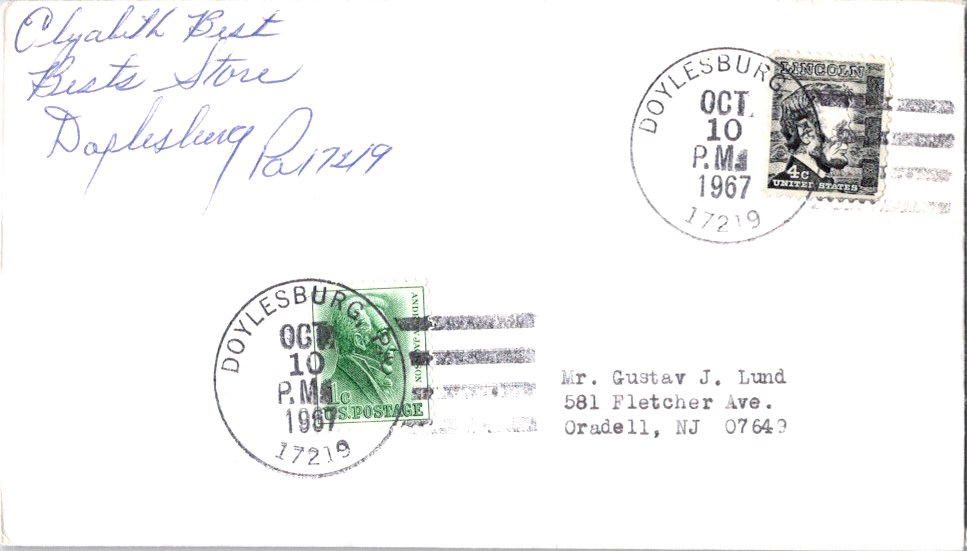 Elizabeth Best
Bests Store
Doylesburg Pa 17219
DOYLESBURG
OCT.
10
P.M.
1967
17219
LINCOLN
4c
UNITED STATES
DOYLESBURG, PA.
OCT.
10
P.M.
1967
17219
ANDREW JACKSON
1c
U.S. POSTAGE
Mr. Gustav J. Lund
581 Fletcher Ave.
Oradell, NJ 07649